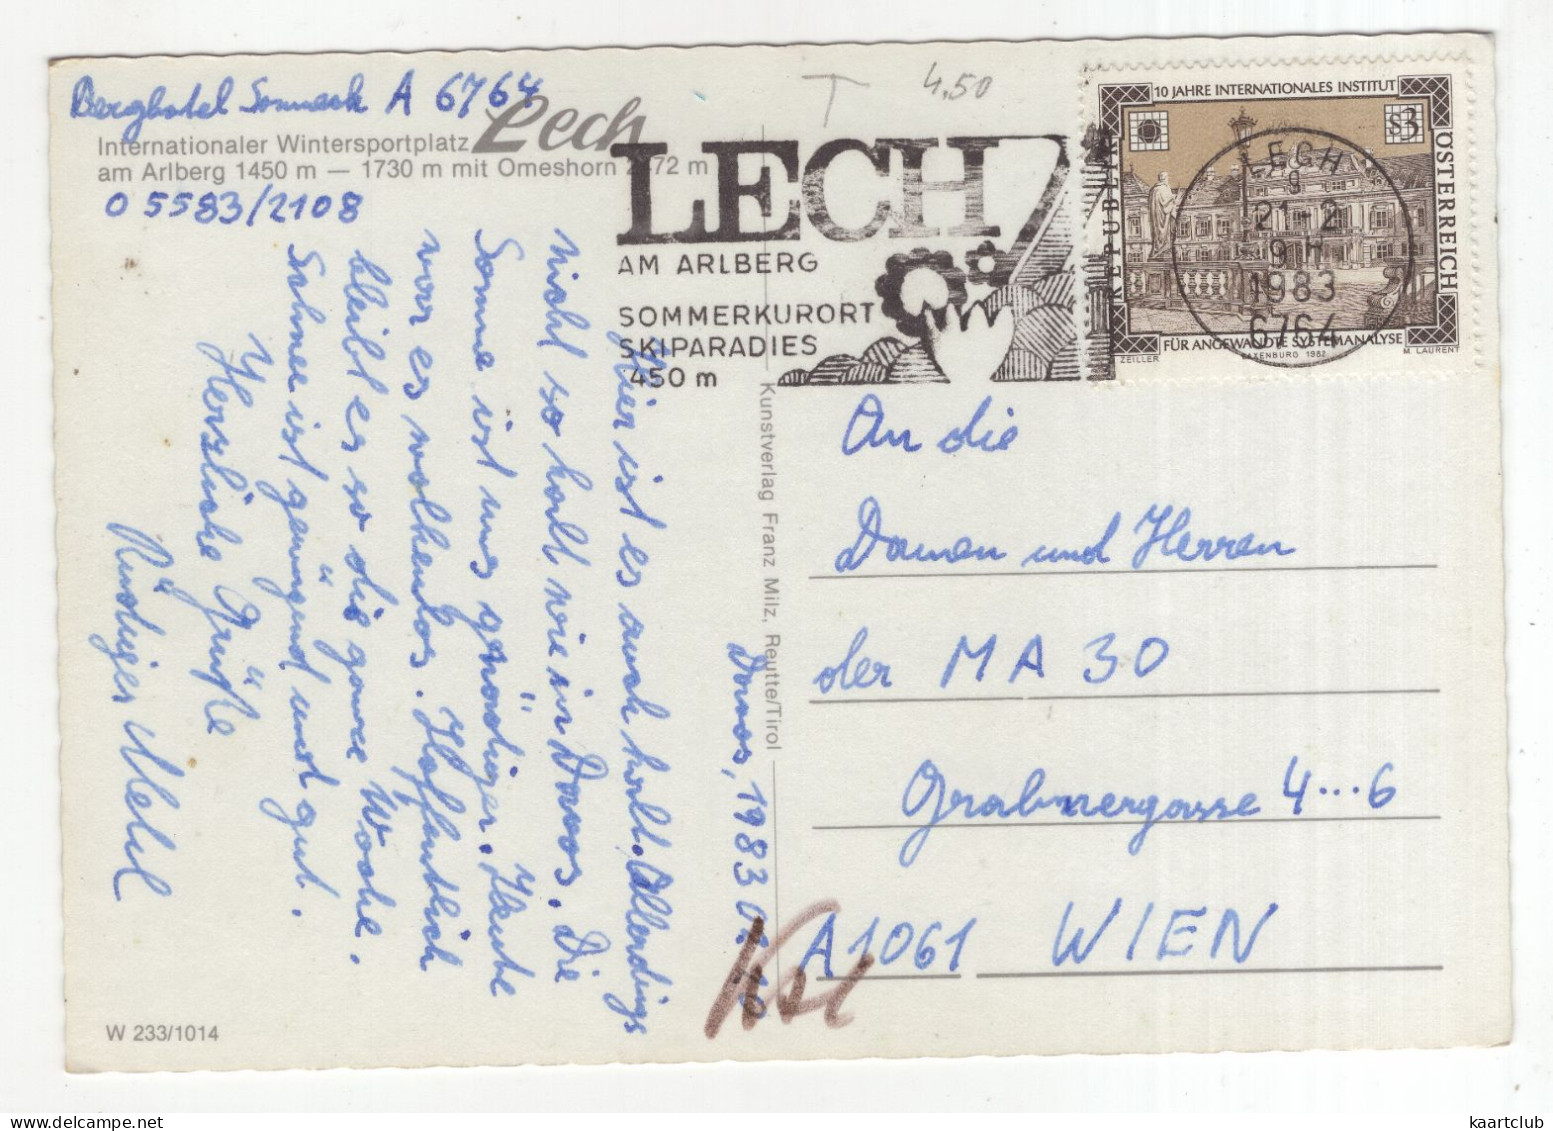 Berghotel Sonneck A 6764
Internationaler Wintersportplatz Lech
am Arlberg 1450 m — 1730 m mit Omeshorn 2 72 m
05583/2108
LECH
AM ARLBERG
SOMMERKURORT
SKIPARADIES
450 m
T
4.50
10 JAHRE INTERNATIONALES INSTITUT
S3
REPUBLIK
ÖSTERREICH
FÜR ANGEWANDTE SYSTEMANALYSE
ZEILLER
LAXENBURG 1982
M. LAURENT
LECH
21-2
9 H
1983
6764
Davos, 1983 02
Hier ist es auch kalt. Allerdings
nicht so kalt wie in Davos. Die
Sonne ist uns gnädiger. Heute
war es wolkenlos. Hoffentlich
bleibt es so die ganze Woche.
Schnee ist genügend und gut.
Herzliche Grüße
Rüdiger
Kunstverlag Franz Milz, Reutte/Tirol
An die
Damen und Herren
der MA 30
Grabnergasse 4...6
A1061 WIEN
W 233/1014
kaartclub